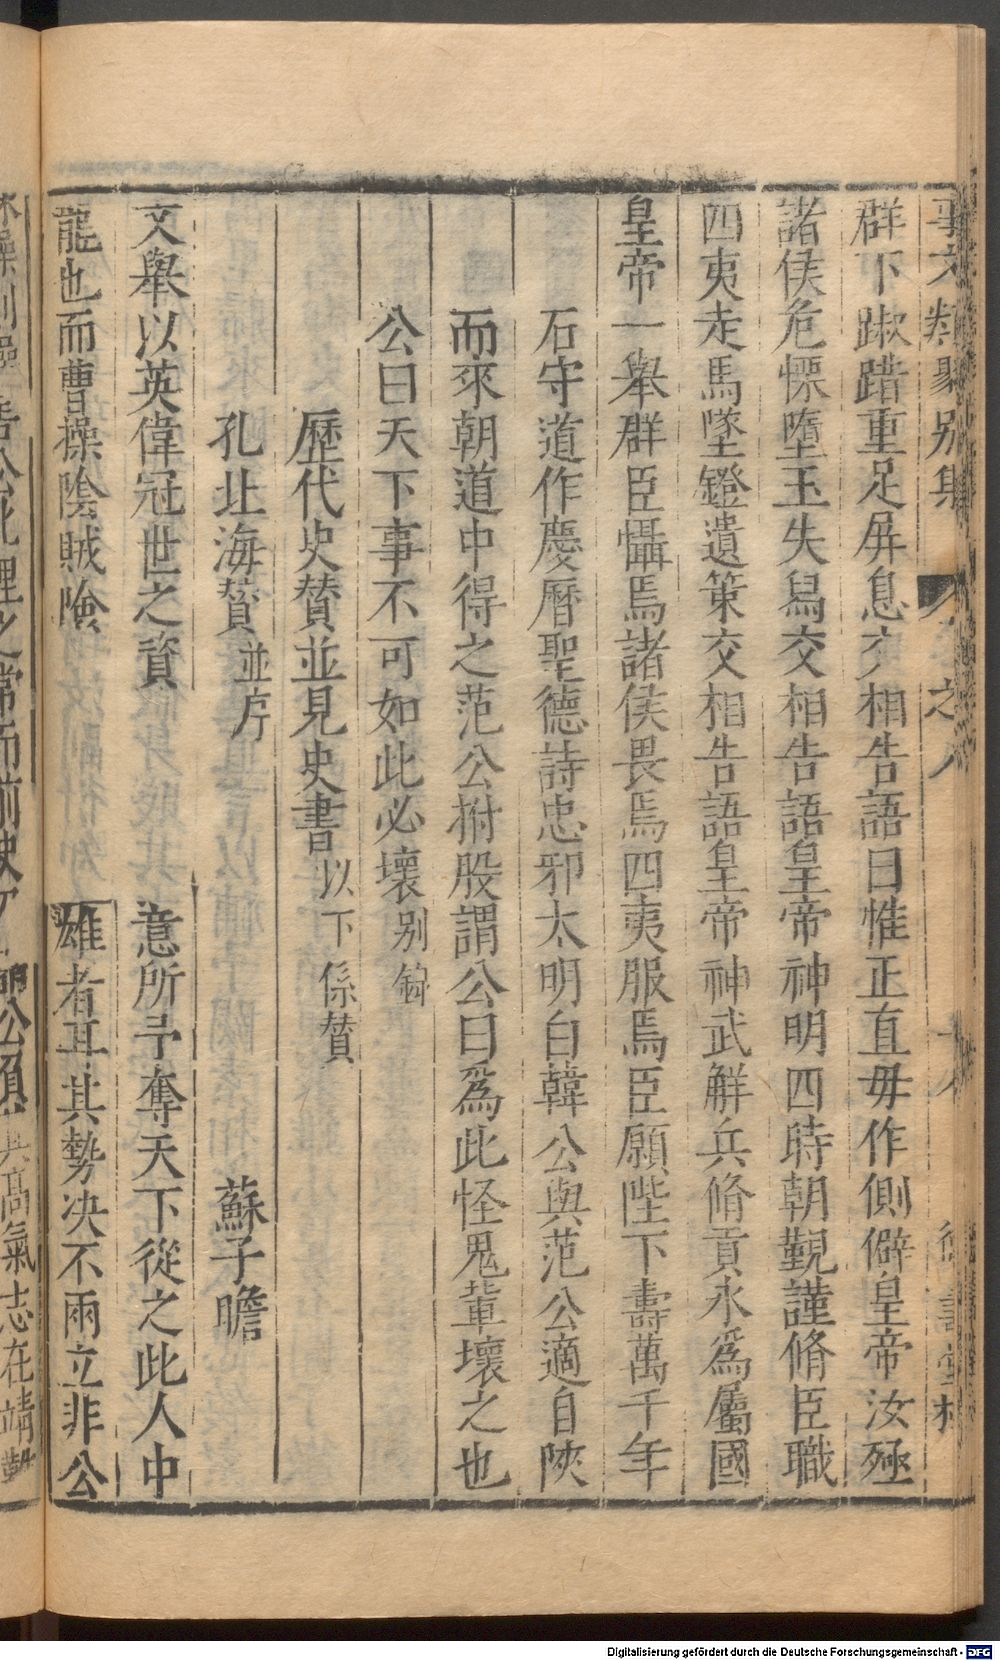 事文類聚別集 卷之八
群下踧踖重足屏息交相告語曰惟正直毋作側僻皇帝汝殛
諸侯危慄墮玉失舄交相告語皇帝神明四時朝覲謹脩臣職
四夷走馬墜鐙遺策交相告語皇帝神武解兵脩貢永爲屬國
皇帝一舉群臣懾焉諸侯畏焉四夷服焉臣願陛下壽萬千年
石守道作慶曆聖德詩忠邪太明白韓公與范公適自陝
而來朝道中得之范公拊股謂公曰爲此怪鬼輩壞之也
公曰天下事不可如此必壞別錄
歷代史贊並見史書以下係贊
孔北海贊並序 蘇子瞻
文舉以英偉冠世之資 意所予奪天下從之此人中
龍也而曹操陰賊險 雄者耳其勢決不兩立非公
Digitalisierung gefördert durch die Deutsche Forschungsgemeinschaft - DFG